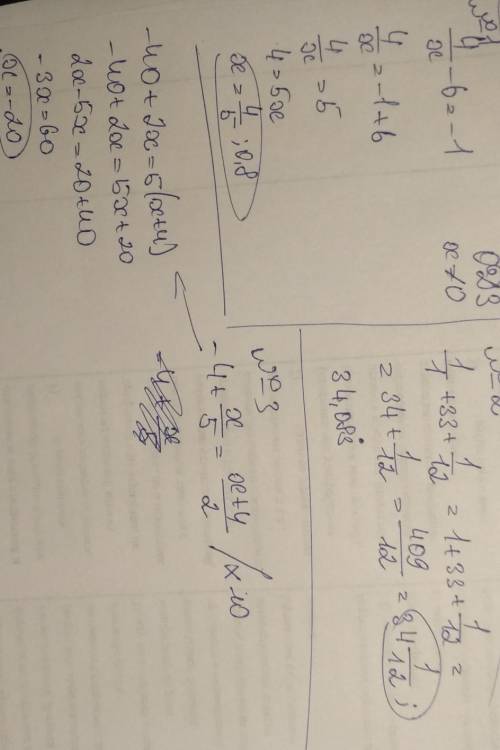 №1
4/x - 6 = -1
4/x = -1 + 6
4/x = 5
4 = 5x
x = 4/5 ; 0,8
ОДЗ
x ≠ 0
№2
1/1 + 33 + 1/12 = 1 + 33 + 1/12 =
= 34 + 1/12 = 409/12 = 34 1/12 ;
34,083
№3
-4 + x/5 = x+4/2 / x 10
-40 + 2x = 5(x+4)
-40 + 2x = 5x + 20
2x - 5x = 20 + 40
-3x = 60
x = -20